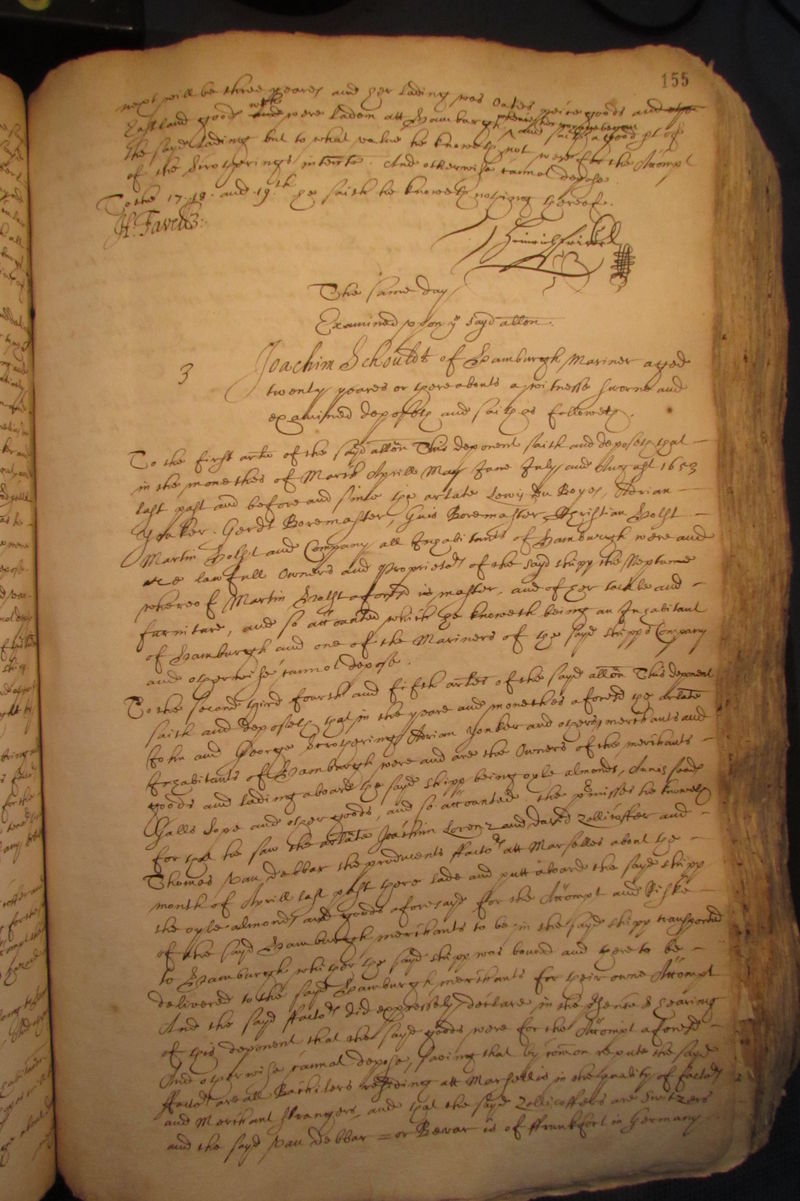 155
next will be three yeares and her lading was Oates peice goods and
Eastland goods and were laden att Hamburgh
the sayd lading but to what value he knoweth not were for the Accompt
of the Strotherings intents. And otherwise cannot depose.
To the 17. 18. and 19th. he saith he knoweth nothing thereof.
The same day
Examined upon ye sayd allon.
3
Joachim Schouldt of Hamburgh Mariner aged
twenty yeares or thereabouts a witnesse sworne and
examined deposeth and saith as followeth.
To the first arte of the sayd allon This deponent saith and deposeth that
in the monethes of March Aprill May June July and August 1653
last past and before and since the arlate Lewis du Boyes, Adrian
Yonker. Gerdt Boremaster, Guis Boremaster Christian Holst
Martin Holst and Company all Inhabitants of Hamburgh were and
are lawfull Owners and Proprietors of the sayd shipp the Neptune
whereof Martin Holst aforesd is master, and of her tackle and
furniture, and so accounted which he knoweth being an Inhabitant
of Hamburgh and one of the Mariners of the sayd shipps Company
and otherwise cannot depose.
To the second third fourth and fifth artes of the sayd allon This deponent
saith and deposeth that in the yeare and monethes aforesd the arlate
John and George Strothering Adrian Yonker and others merchants and
Inhabitants of Hamburgh were and are the Owners of the merchants
goods and lading aboard the sayd shipp being oyle almonds, Annis seeds
Galls Sope and other goods, and so accounted the pmisses he knoweth
for that he saw the arlate Joachim Lorenz and david Zollicoffer and
Thomas Van debbar the producents ffactors att Marselles about the
month of Aprill last past there lade and putt aboard the sayd shipp
the oyle almonds and goods aforesayd for the Accompt and Riske
of the sayd Hamburgh merchants to be in the sayd shipp transported
to Hamburgh whither the sayd shipp was bound and there to be
delivered to the sayd Hamburgh merchants for their owne Accompt
And the sayd ffactors did expressely declare in the presence & hearing
of this deponent that the sayd goods were for the Accompt aforesd
And otherwise cannot depose, saving that by common repute the sayd
ffactors are all Bachilers residing att Marsellis in the quality of factors
and Merchant strangers, and that the sayd Zollicoffers are Switzers
and the sayd Van debbar or Bevar is of ffrankfort in Germany